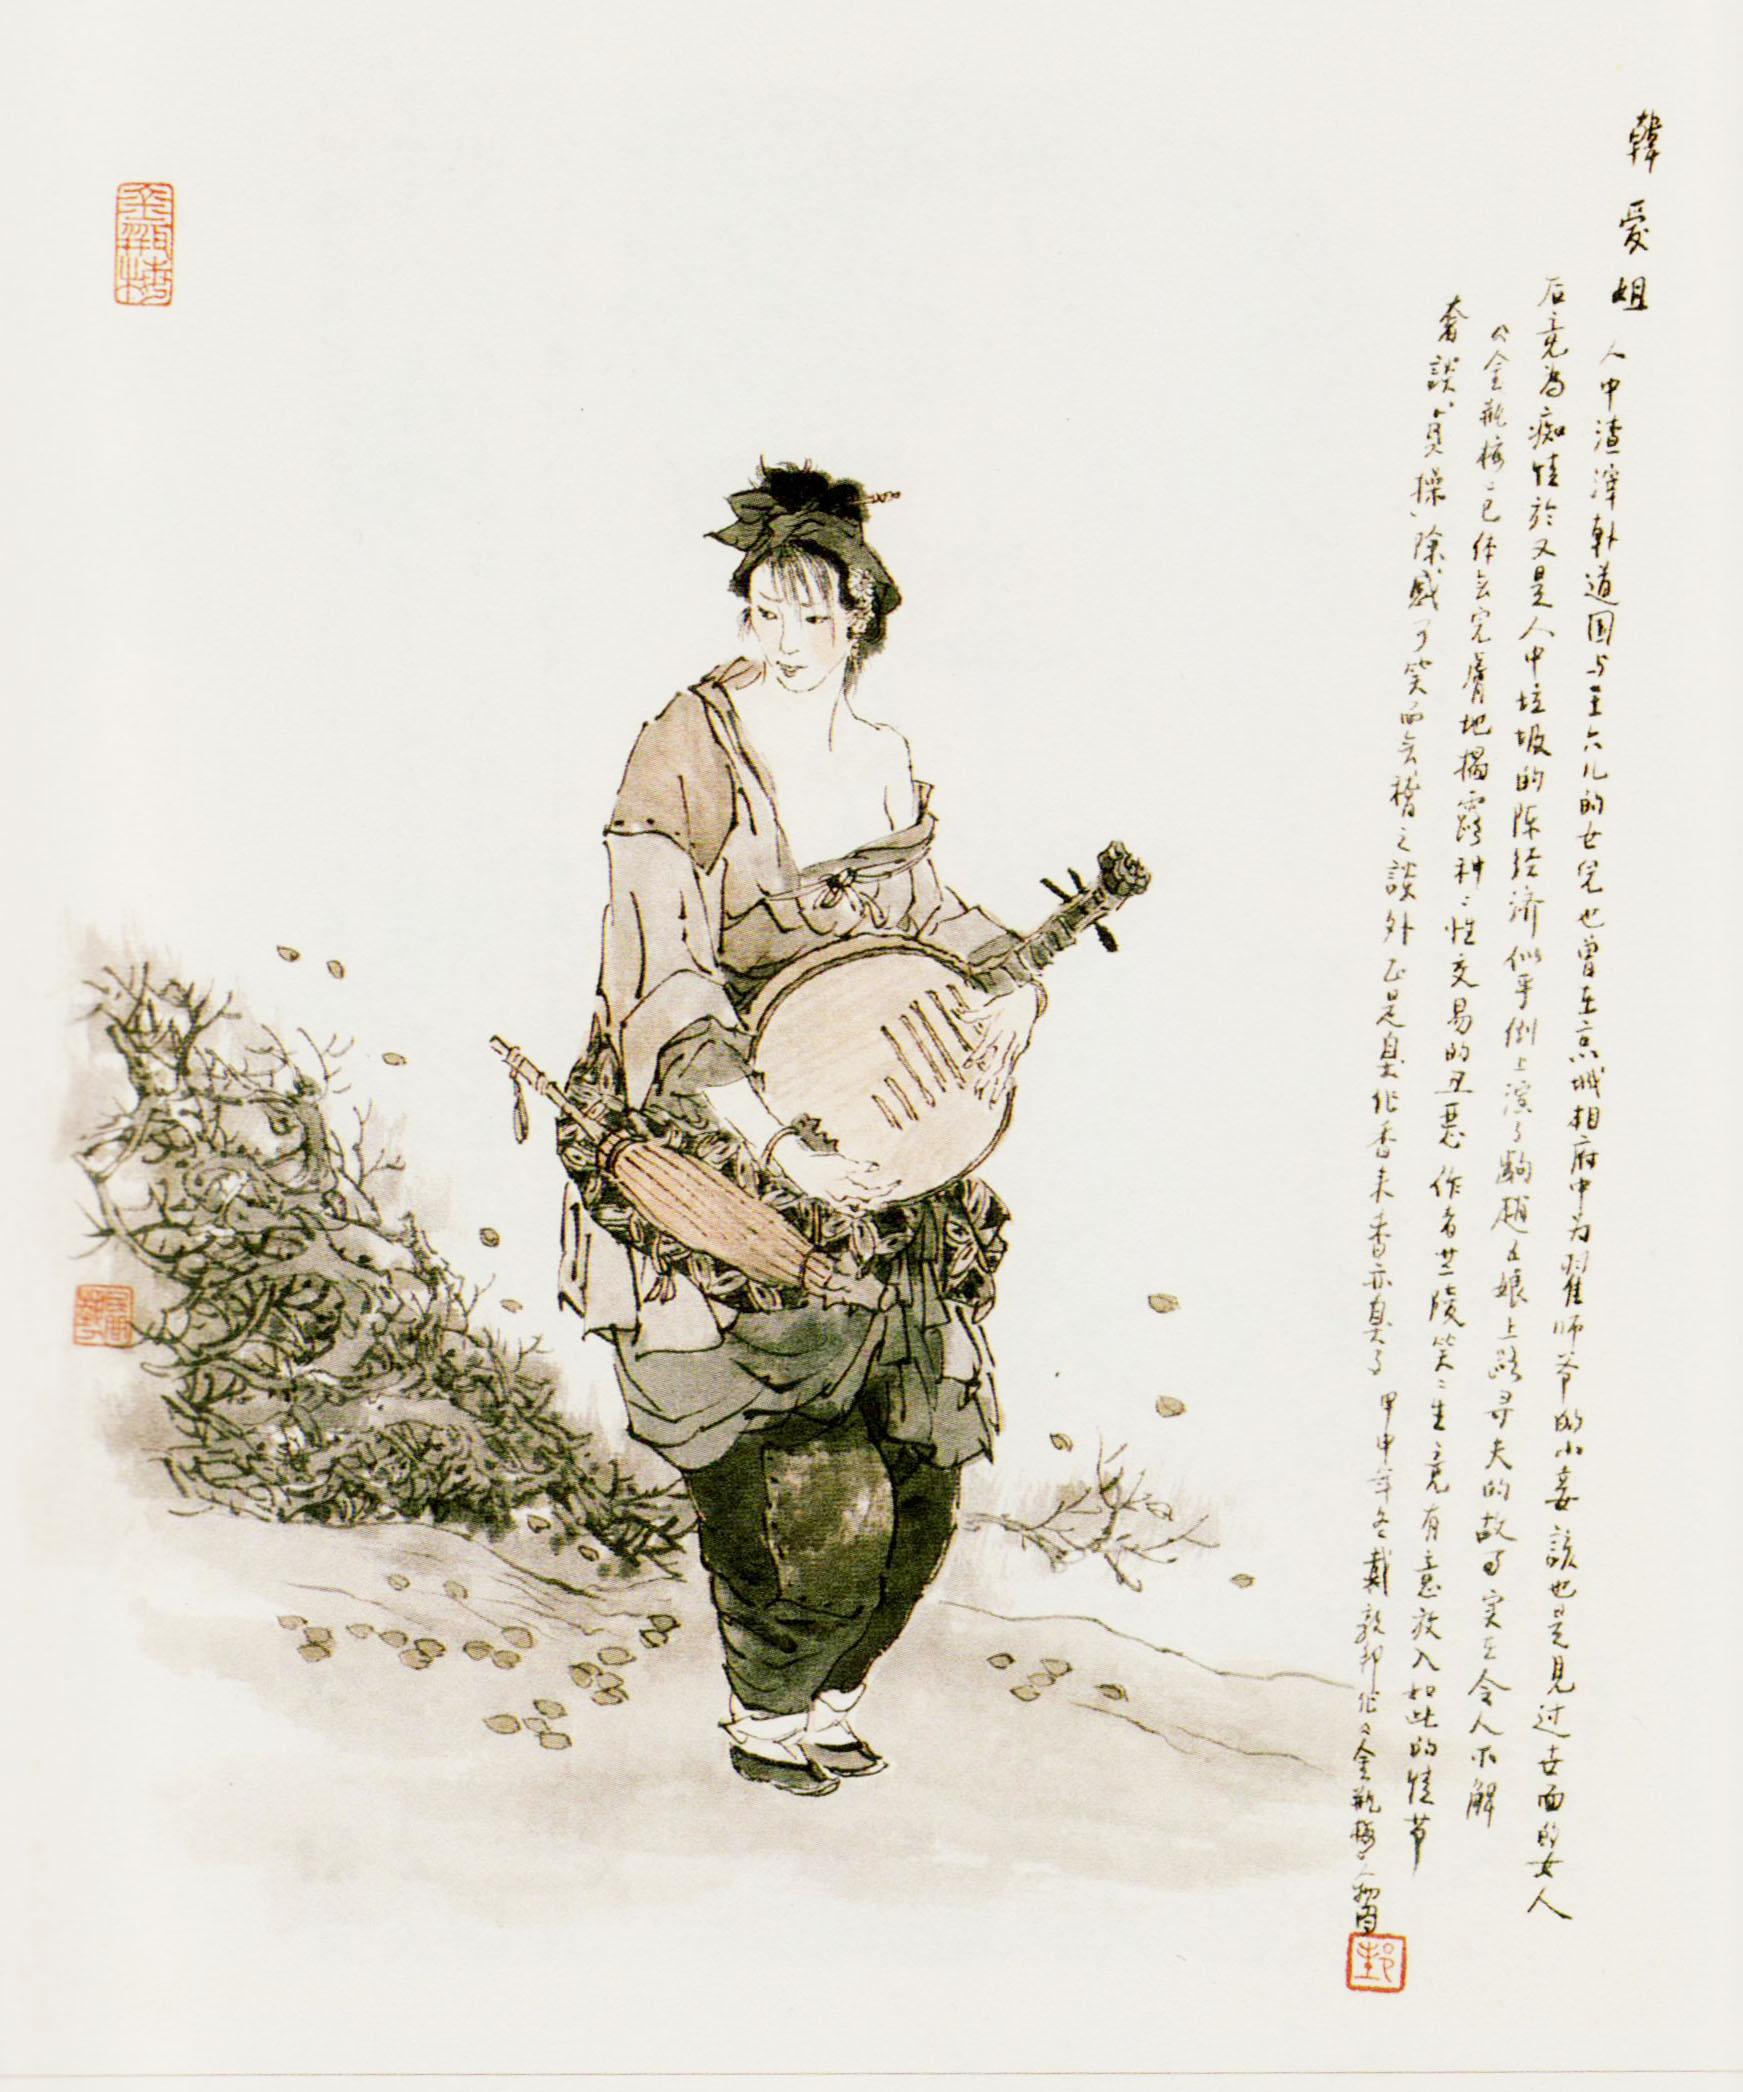 韓爱姐
人中渣滓韩道国与王六儿的女兒也曾在京城相府中为翟师爷的小妾該也是見过世面的女人
后竟为痴情於又是人中垃圾的陈经济似乎倒上演了齣趙五娘上路寻夫的故事实在令人不解
《金瓶梅》已体会完膚地揭露种〻性交易的丑恶作者兰陵笑〻生竟有意放入如此的情节
奢談“貞操”除感可笑而会稽之談外正是臭作香来香亦臭了 甲申年冬戴敦邦作《金瓶梅》人物圖
金瓶梅
邦